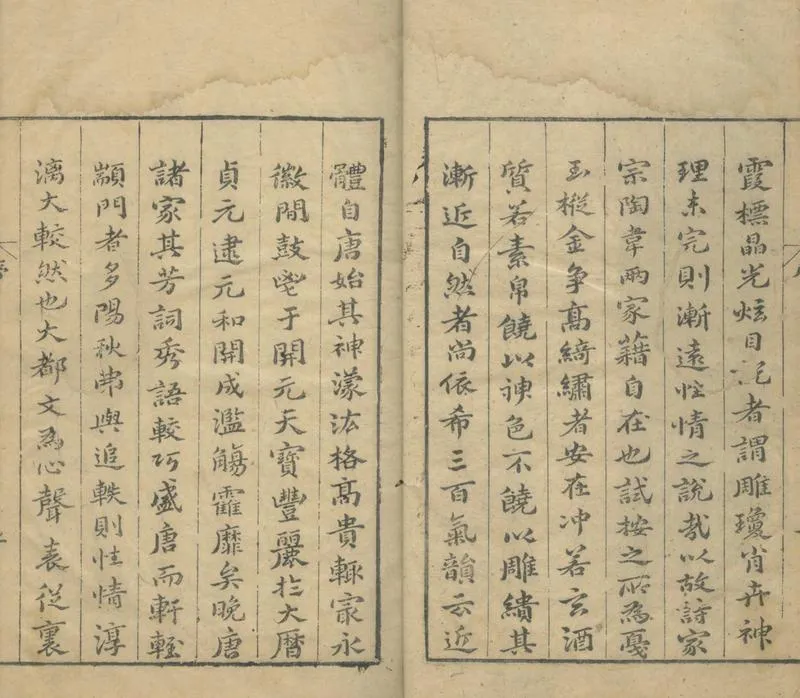 霞標晶光炫目記者謂雕瓊肖卉神
理未完則漸遠性情之說哉以故詩家
宗陶韋兩家藉自在也試按之所為戛
玉摐金爭髙綺繡者安在冲若玄酒
質若素帛饒以神色不饒以雕繢其
漸近自然者尚依希三百氣韻云近
體自唐始其神濛汯格髙貴輒家永
徽間鼓鬯于開元天寶豐麗於大曆
貞元逮元和開成濫觴靃靡矣晚唐
諸家其芳詞秀語較巧盛唐而軒輊
顓門者多陽秋弗與追軼則性情淳
漓大較然也大都文為心聲表從裏